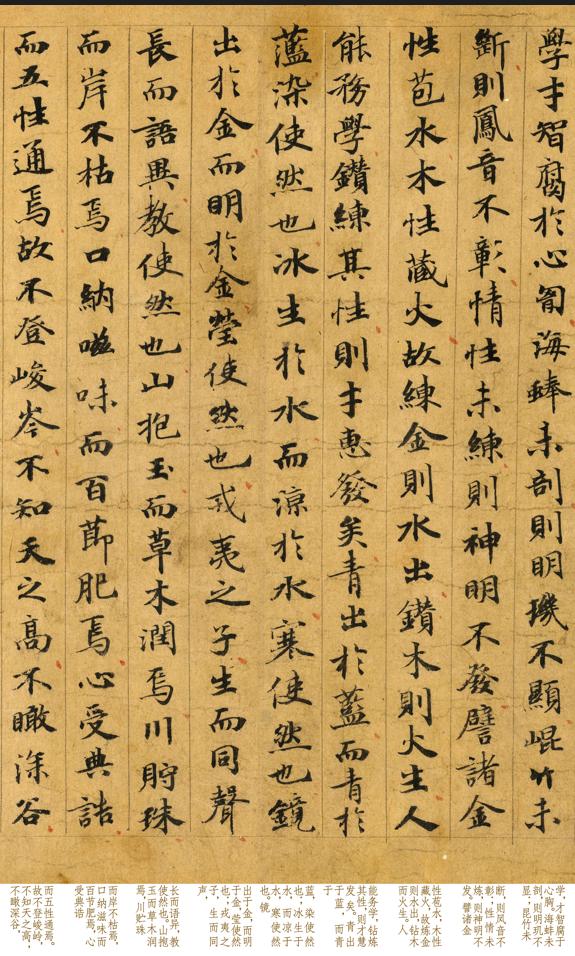 學才智腐於心匈海蜯未剖則明璣不顯崐竹未
斷則鳳音不彰情性未練則神明不發譬諸金
性苞水木性藏火故練金則水出鑽木則火生人
能務學鑽練其性則才惠發矣青出於藍而青於
藍染使然也冰生於水而涼於水寒使然也鏡
出於金而明於金瑩使然也戎夷之子生而同聲
長而語異教使然也山抱玉而草木潤焉川貯珠
而岸不枯焉口納嗞味而百節肥焉心受典誥
而五性通焉故不登峻岑不知天之高不瞰深谷
学，才智腐于
心胸。海蚌未
剖，则明玑不
显；昆竹未
断，则凤音不
彰；性情未
练，则神明不
发。譬诸金
性苞水，木性
藏火，故炼金
则水出，钻木
而火生。人
能务学，钻炼
其性，则才慧
发矣。青出
于蓝，而青于
蓝，染使然
也；冰生于
水，而凉于
水，寒使然
也。镜
出于金，而明
于金，莹使然
也，戎夷之
子，生而同
声，
长而语异，教
使然也。山抱
玉而草木润
焉，川贮珠
而岸不枯焉，
口纳滋味而
百节肥焉，心
受典诰
而五性通焉。
故不登峻岭，
不知天之高；
不瞰深谷，